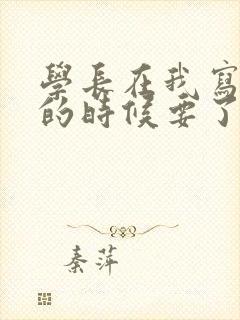 學長在我寫
的時候要了
秦萍